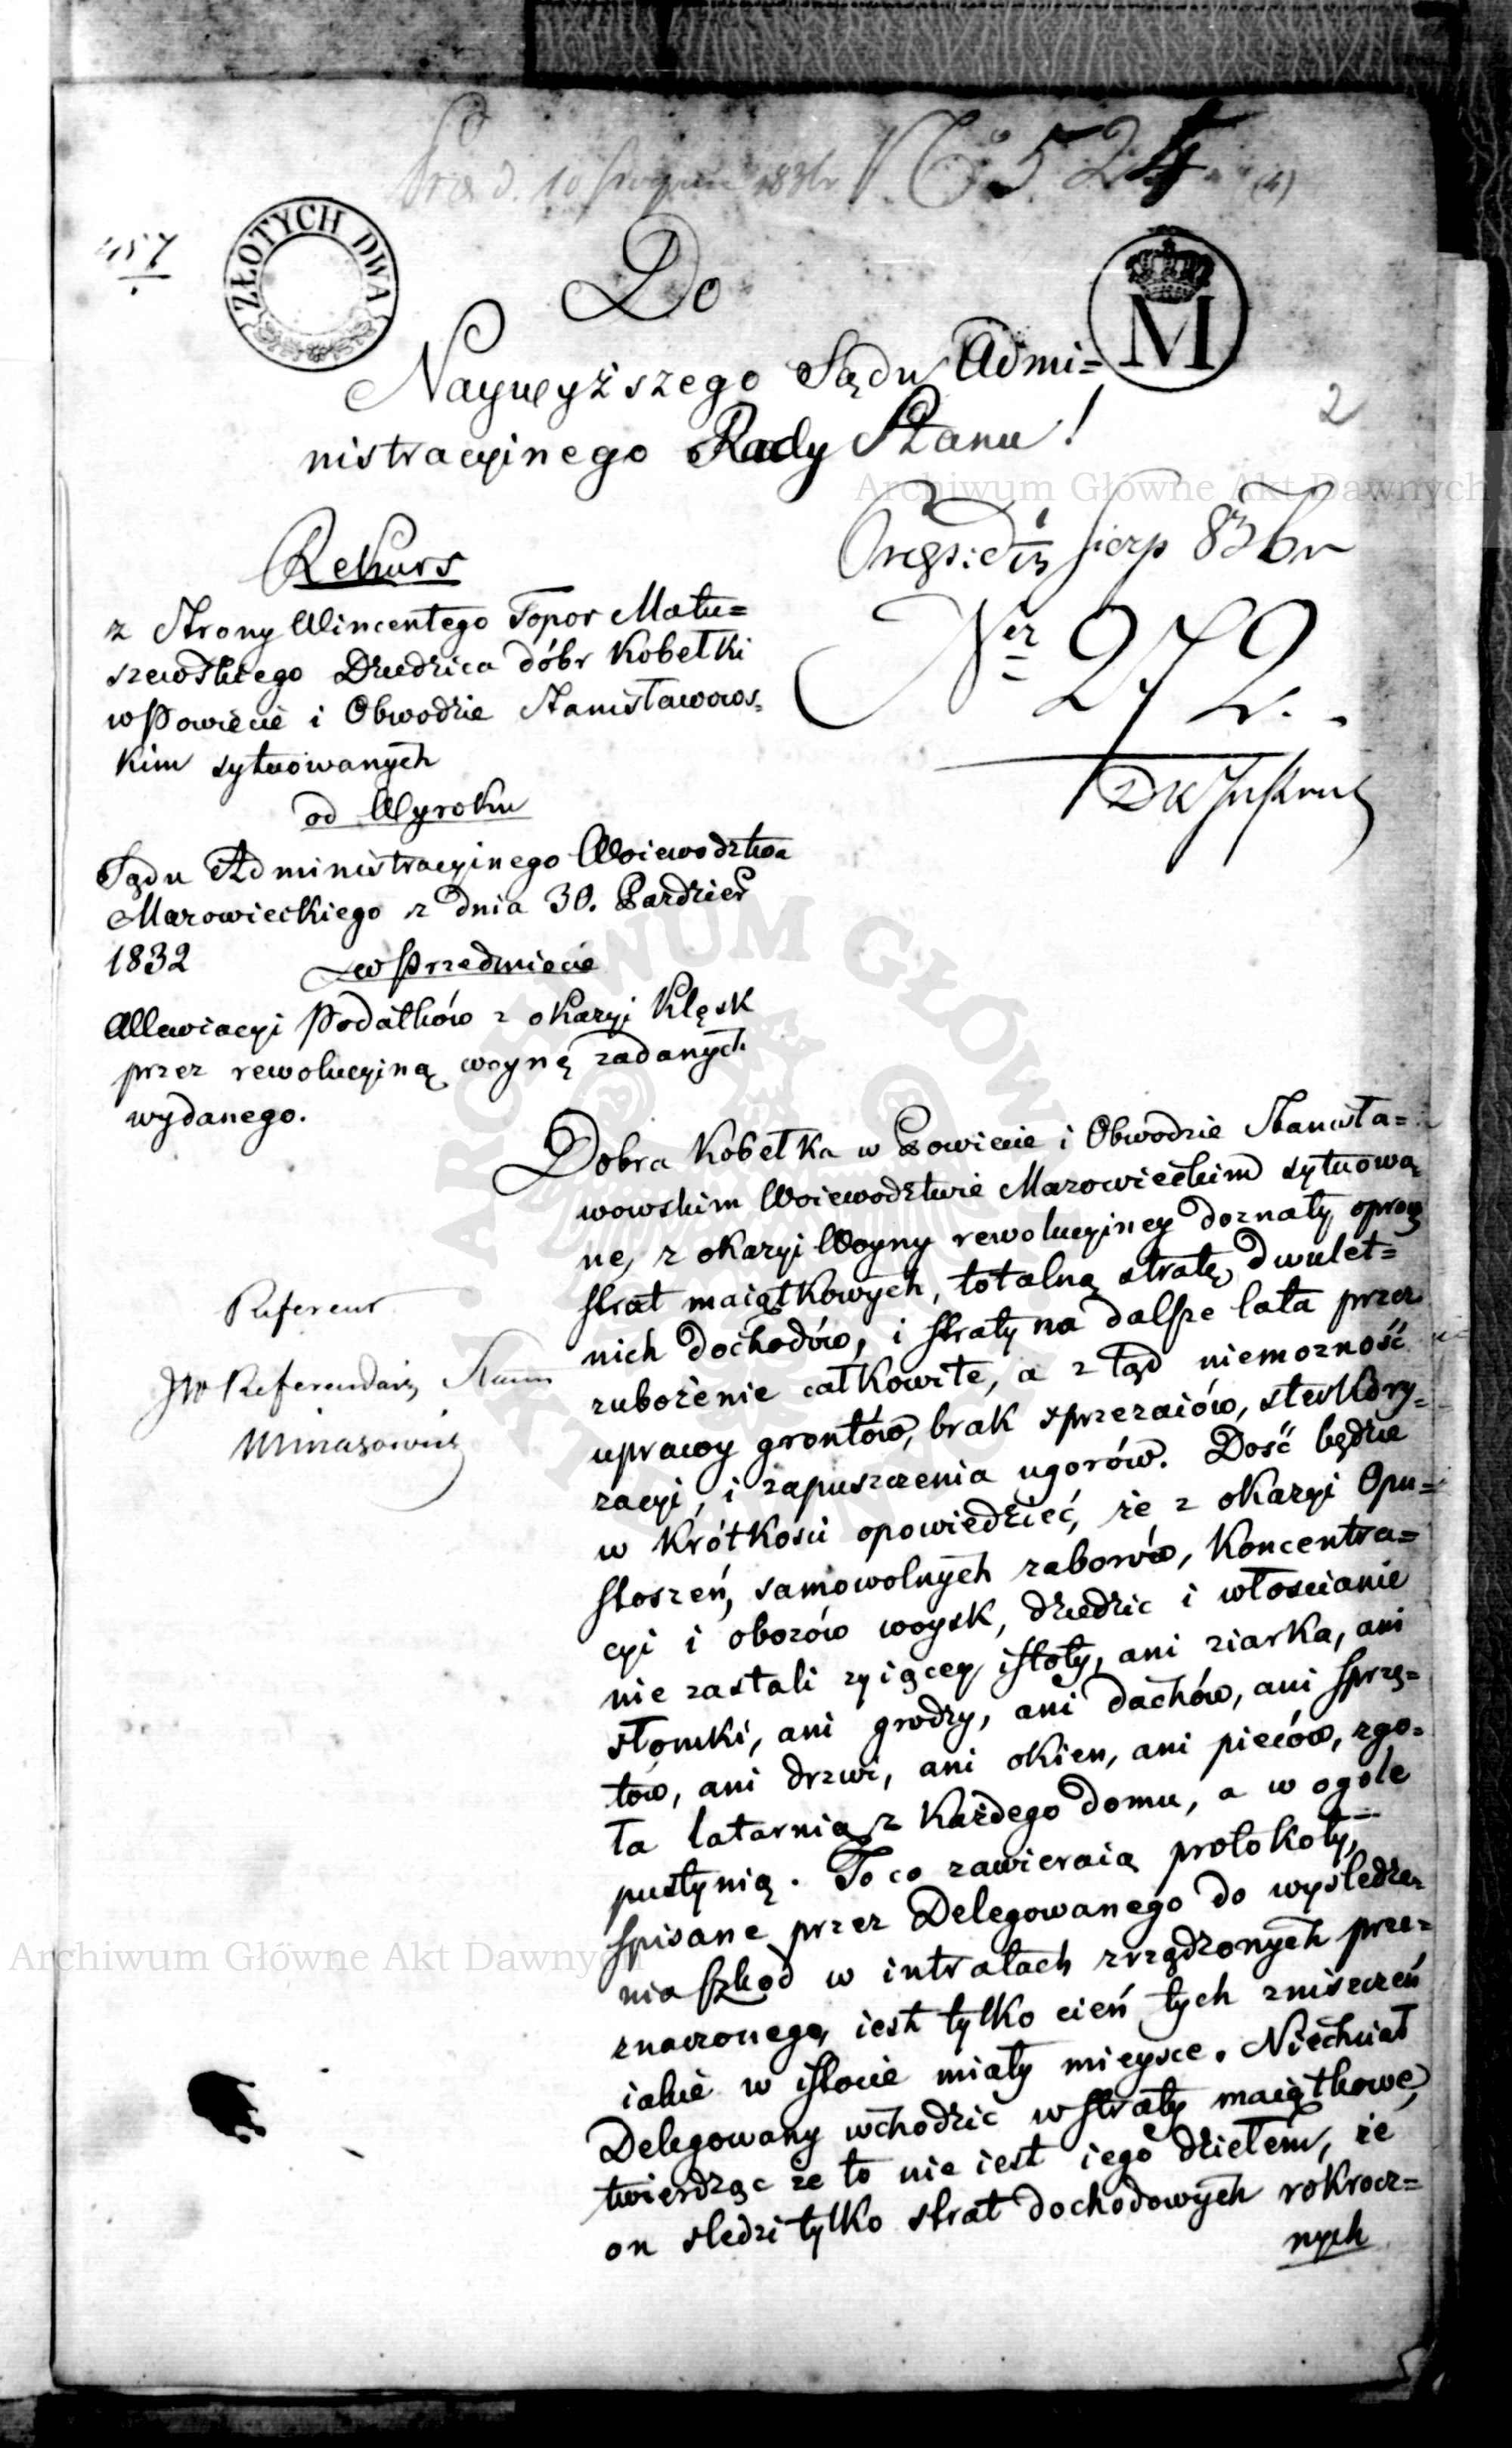 No 524
457
ZŁOTYCH DWA
M
Do
Naywyższego Sądu Admi=
nistracyinego Rady Stanu!
2
Archiwum Główne Akt Dawnych
Rekurs
z Strony Wincentego Topor Matu=
szewskiego Dziedzica dóbr Kobełki
w Powiecie i Obwodzie Stanisławows=
kim sytuowanych
od Wyroku
Sądu Administracyinego Woiewodztwa
Mazowieckiego z dnia 30. Pazdzier
1832 w Przedmiocie
Allewiacyi Podatków z okazyi Klęsk
przez rewolucyiną woynę zadanych
wydanego.
Sierp 836 r
Ner 272.
Referent
JW Referendarz Stanu
Minasowicz
Dobra Kobełka w Powiecie i Obwodzie Stanisła=
wowskim Woiewodztwie Mazowieckim sytuowa=
ne, z okazyi Woyny rewolucyiney doznały oprocz
strat maiątkowych, totalną stratę dwulet=
nich dochodów, i straty na dalsze lata przez
zubożenie całkowite, a z tąd niemozność
uprawy grontów, brak sprzezaiów, sterkory=
zacyi, i zapuszczenia ugorów. Dość będzie
w Krótkości opowiedzieć, że z okazyi Opu=
stoszeń, samowolnych zaborów, Koncentra=
cyi i obozów woysk, dziedzic i włoscianie
nie zastali zyiącey istoty, ani ziarka, ani
słomki, ani grodzy, ani dachów, ani sprzę=
tów, ani drzwi, ani okien, ani pieców, zgo=
ła latarnią z Każdego domu, a w ogole
pustynią. To co zawieraią protokoły,
spisane przez Delegowanego do wysledze=
nia szkod w intratach zrządzonych prze=
znaczonego, iest tylko cień tych zniszczeń
iakie w istocie miały mieysce. Niechciał
Delegowany wchodzic w straty maiątkowe,
twierdząc ze to nie iest iego dziełem, że
on sledzi tylko strat dochodowych rokrocz=
nych
Archiwum Główne Akt Dawnych
ARCHIWUM GŁÓWNE AKT DAWNYCH